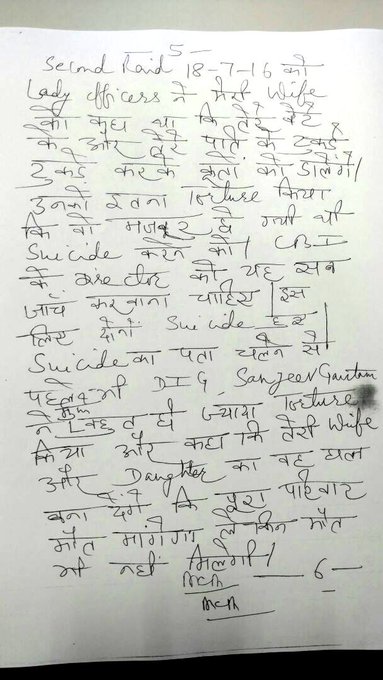 — 5 —
Second Raid 18-7-16 को
Lady officers ने मेरी Wife
को कहा था कि तेरे बेटे
के और तेरे पति के टुकड़े
टुकड़े करके कुतों को डालेंगे/
उनको इतना Torture किया
कि वो मजबूर हो गयी थी
Suicide करने को/ CBI
के Director को यह सब
जाँच करवाना चाहिए/ इस
लिए दोनों Suicide हुए/
Suicide का पता चलने से
पहले भी DIG Sanjeev Gautam
ने बहुत ही ज्यादा Torture
किया और कहा कि तेरी Wife
और Daughter का वह हाल
बना देंगे कि पूरा परिवार
मौत मांगेगा लेकिन मौत
भी नहीं मिलेगी/
— 6 —